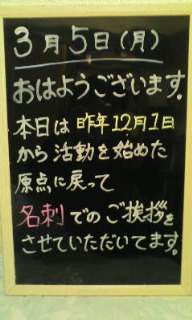 3月5日(月)
おはようございます。
本日は昨年12月1日
から活動を始めた
原点に戻って
名刺でのご挨拶を
させていただいてます。